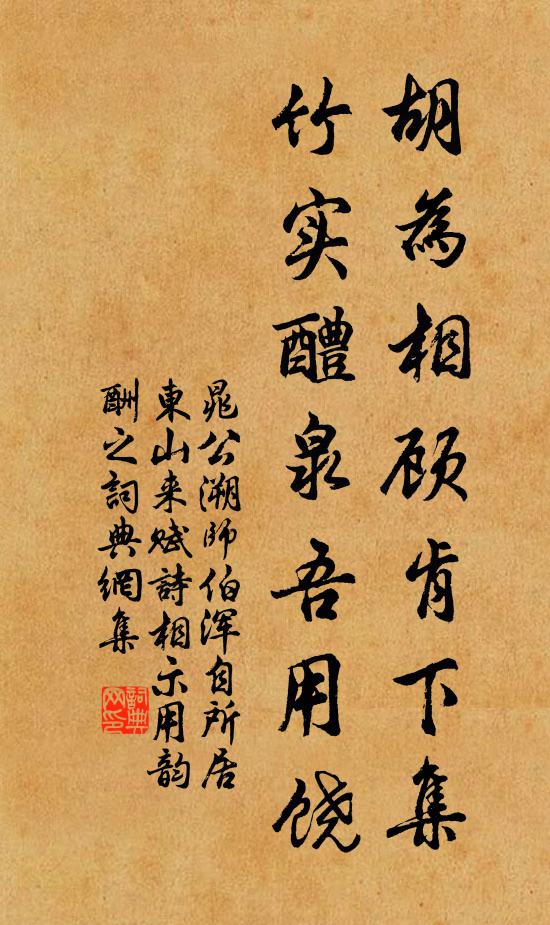 胡為相顾肯下集
竹实醴泉吾用饶
晁公溯师伯浑自所居
東山来赋詩相示用韵
酬之詞典網集
詞典
网印